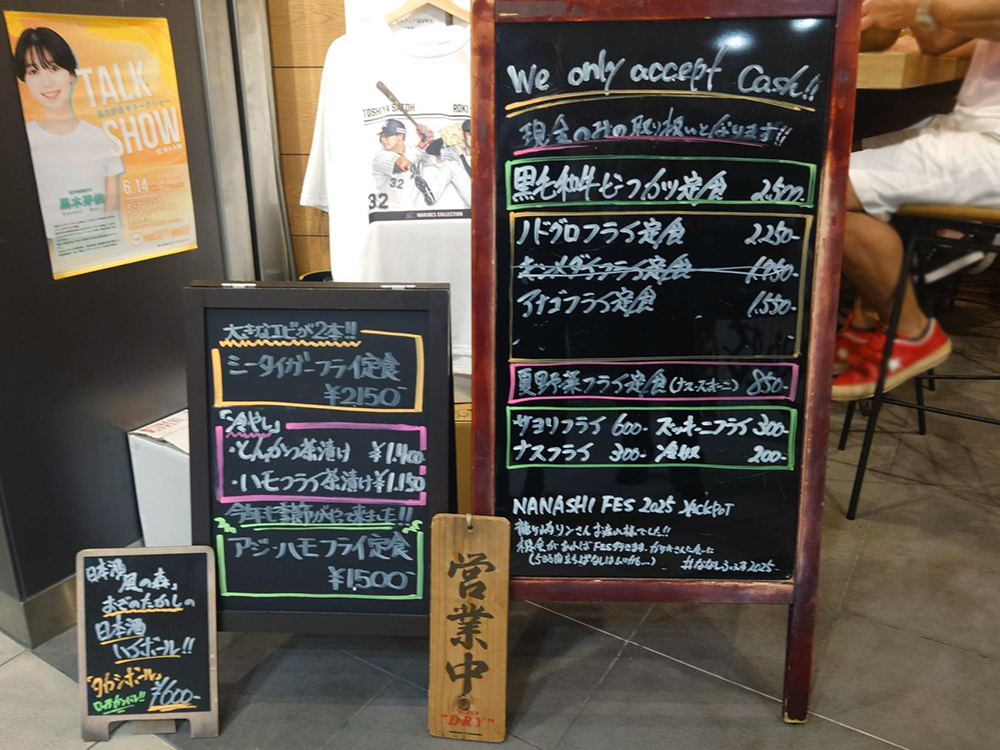 TALK
SHOW
6.14
TOSHIYA SATOH
ROKI
32
32
MARINES COLLECTION
We only accept Cash!!
現金のみの取り扱いとなります!!
黒毛和牛ビーフカツ定食 2,500-
ノドグロフライ定食 2,250-
キンメダイフライ定食 1,950-
アナゴフライ定食 1,550-
夏野菜フライ定食(ナス、ズッキーニ) 850-
サヨリフライ 600- ズッキーニフライ 300-
ナスフライ 300- 冷奴 200-
NANASHI FES 2025 JACKPOT
#ななしふぇす2025-
大きなエビが2本!!
シータイガーフライ定食
¥2150-
「冷やし」
・とんかつ茶漬け ¥1,400-
・ハモフライ茶漬け ¥1,150
今年も季節がやって来ました!!
アジ・ハモフライ定食
¥1500-
日本酒
風の森」
おざのたかしの
日本酒
ハイボール!!
「タカシボール」
¥600-
営業中
"DRY"